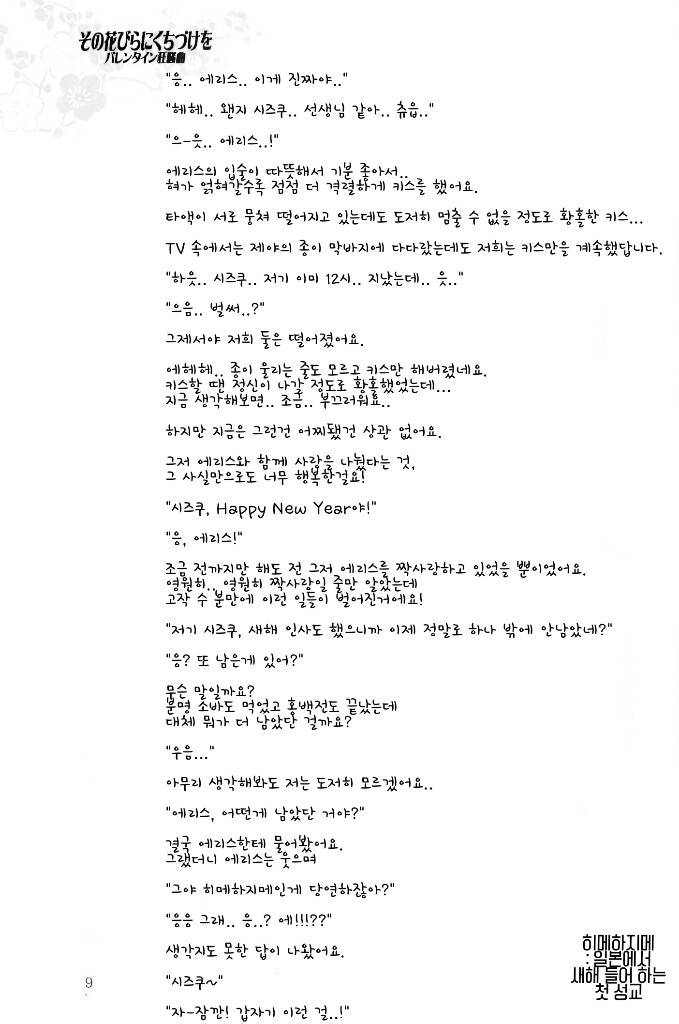 その花びらにくちづけを
バレンタイン狂騒曲
"응.. 에리스.. 이게 진짜야.."
"헤헤.. 왠지 시즈쿠.. 선생님 같아.. 츄읍.."
"으-읏.. 에리스..!"
에리스의 입술이 따뜻해서 기분 좋아서..
혀가 얽혀갈수록 점점 더 격렬하게 키스를 했어요.
타액이 서로 뭉쳐 떨어지고 있는데도 도저히 멈출 수 없을 정도로 황홀한 키스...
TV 속에서는 제야의 종이 막바지에 다다랐는데도 저희는 키스만을 계속했답니다.
"하읏.. 시즈쿠.. 저기 이미 12시.. 지났는데.. 읏.."
"으음.. 벌써..?"
그제서야 저희 둘은 떨어졌어요.
에헤헤.. 종이 울리는 줄도 모르고 키스만 해버렸네요.
키스할 땐 정신이 나갈 정도로 황홀했었는데...
지금 생각해보면.. 조금.. 부끄러워요..
하지만 지금은 그런건 어찌됐건 상관 없어요.
그저 에리스와 함께 사랑을 나눴다는 것,
그 사실만으로도 너무 행복한걸요!
"시즈쿠, Happy New Year야!"
"응, 에리스!"
조금 전까지만 해도 전 그저 에리스를 짝사랑하고 있었을 뿐이었어요.
영원히.. 영원히 짝사랑일 줄만 알았는데
고작 수 분만에 이런 일들이 벌어진거에요!
"저기 시즈쿠, 새해 인사도 했으니까 이제 정말로 하나 밖에 안남았네?"
"응? 또 남은게 있어?"
무슨 말일까요?
분명 소바도 먹었고 홍백전도 끝났는데
대체 뭐가 더 남았단 걸까요?
"우음..."
아무리 생각해봐도 저는 도저히 모르겠어요..
"에리스, 어떤게 남았단 거야?"
결국 에리스한테 물어봤어요.
그랬더니 에리스는 웃으며
"그야 히메하지메인게 당연하잖아?"
"응응 그래.. 응..? 에!!!??"
생각지도 못한 답이 나왔어요.
"시즈쿠~"
"자-잠깐! 갑자기 이런 걸..!"
히메하지메
: 일본에서
새해 들어 하는
첫 성교
9